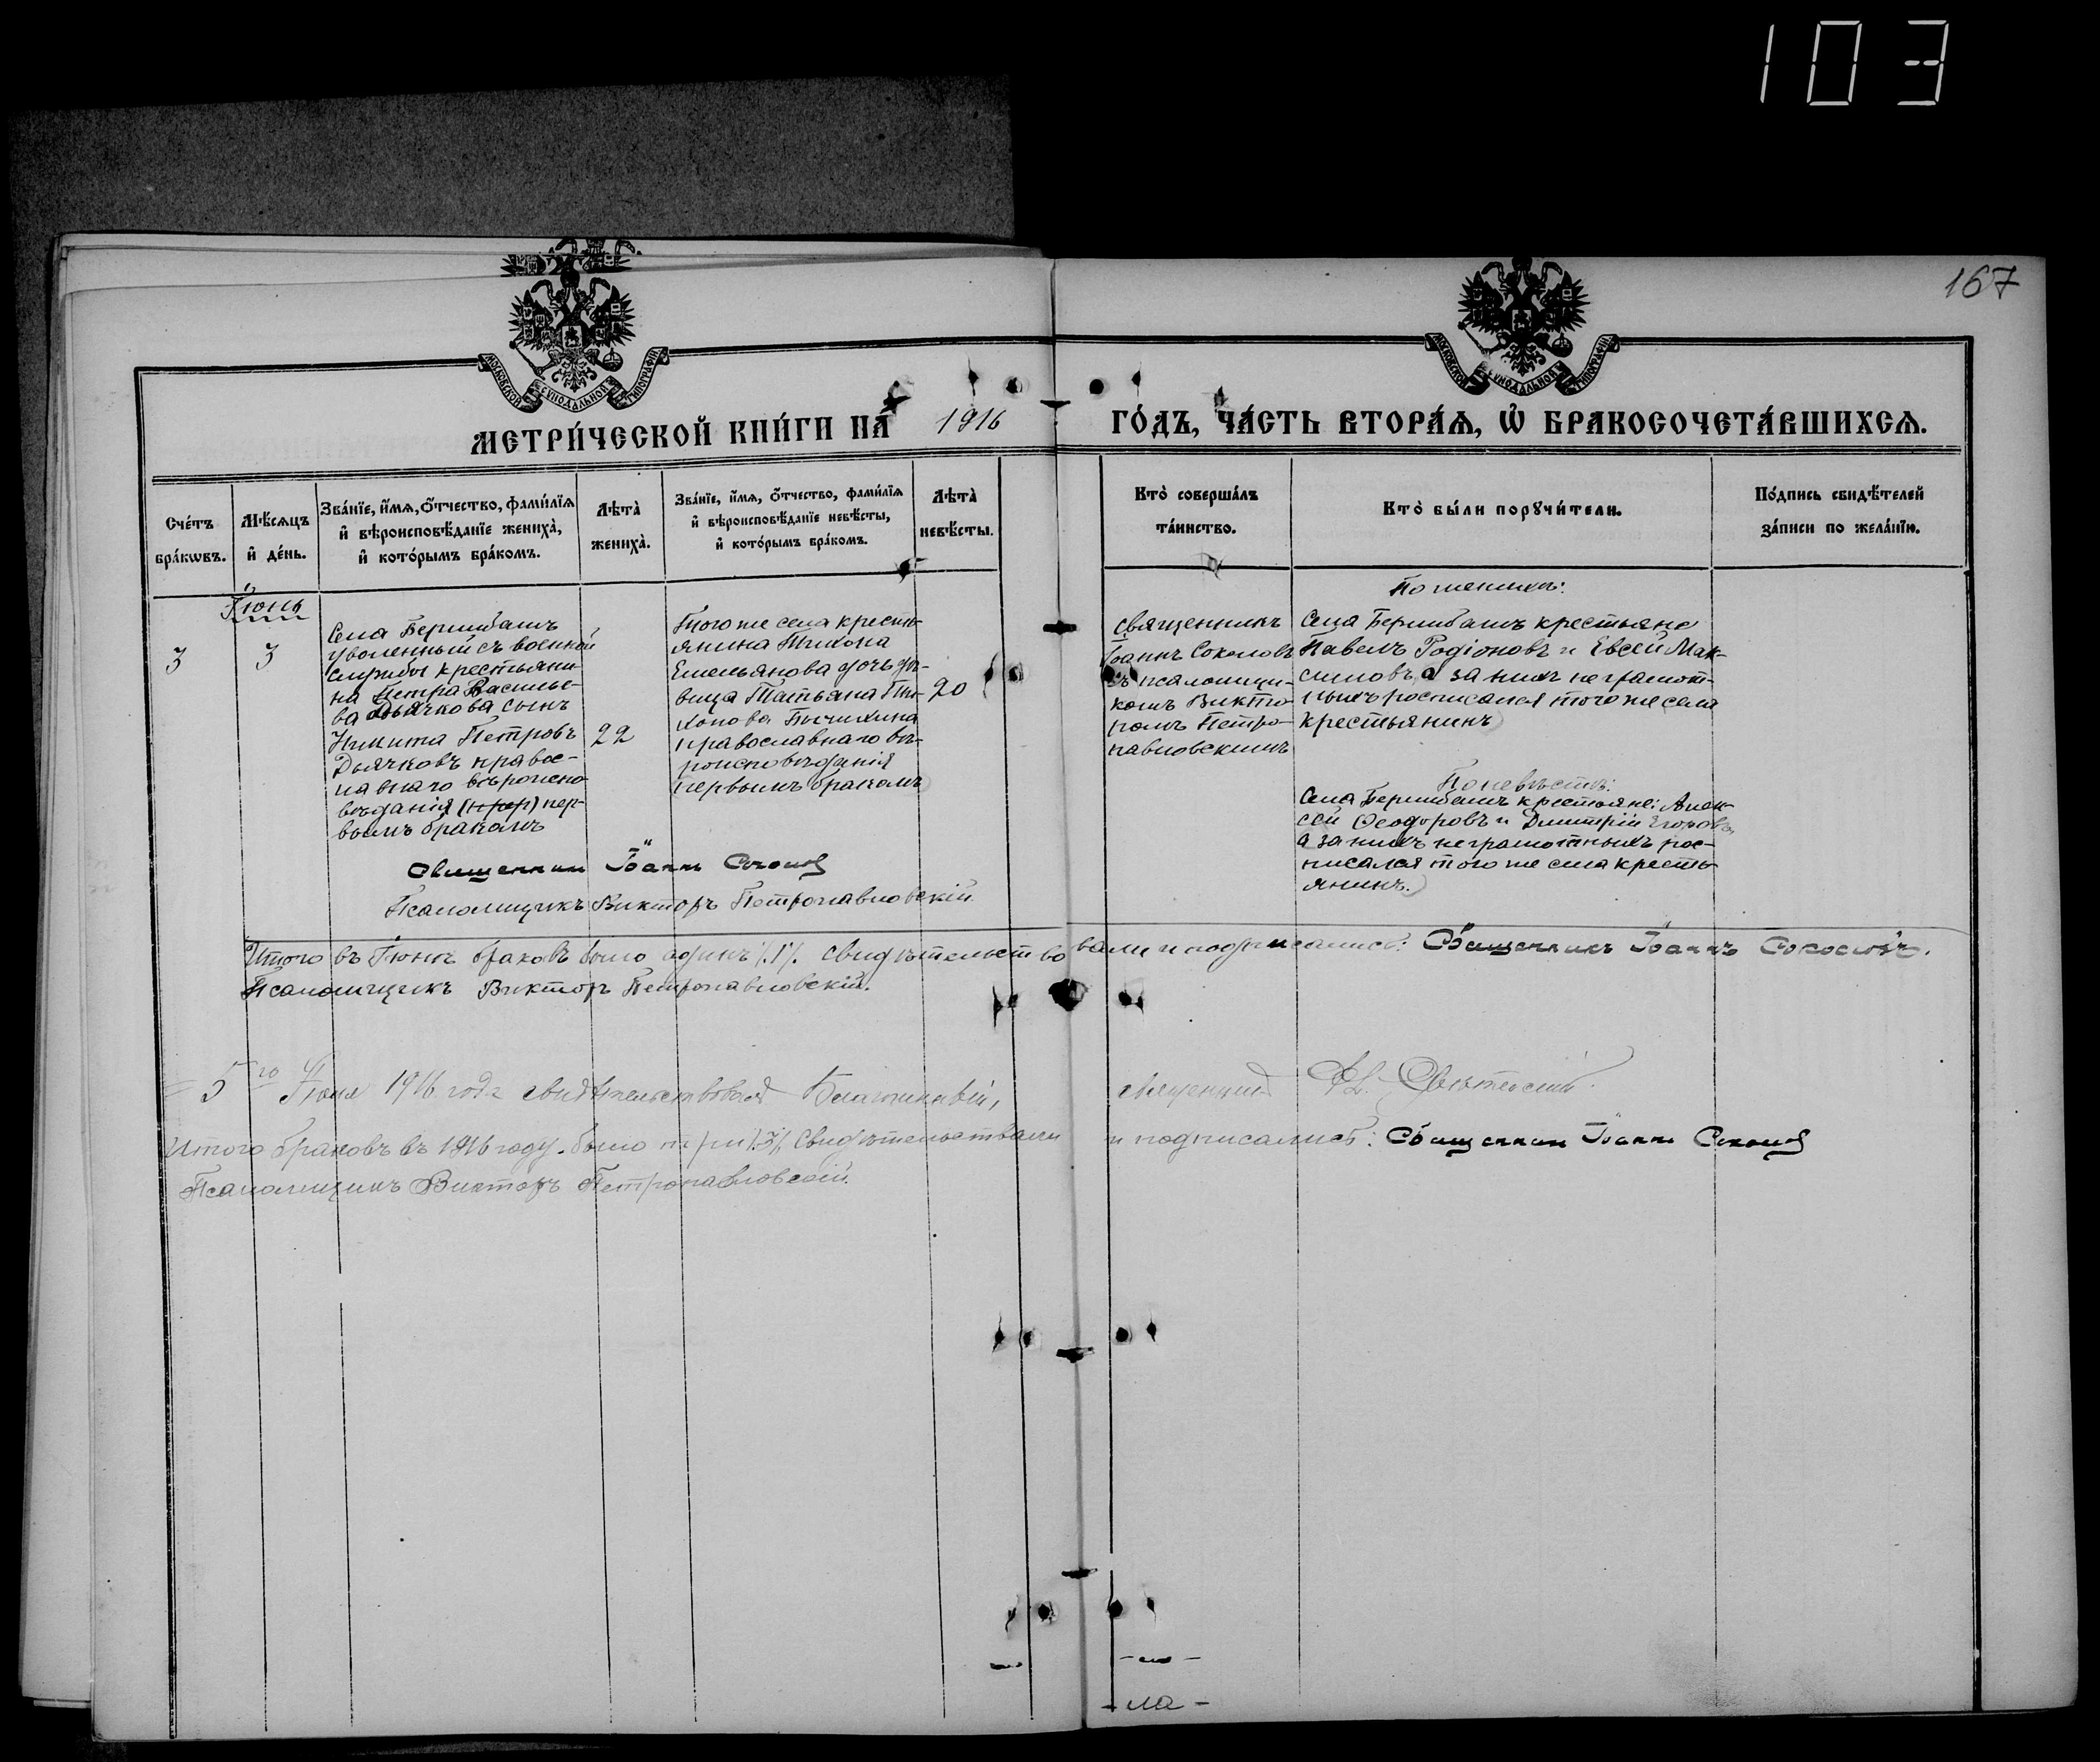 103
167
МОСКОВСКОЙ СѴНОДАЛЬНОЙ ТИПОГРАФІИ
МОСКОВСКОЙ СѴНОДАЛЬНОЙ ТИПОГРАФІИ
МЕТРИ́ЧЕСКОЙ КНИ́ГИ НА́ 1916 ГО́ДЪ, ЧА́СТЬ ВТОРА́Ѧ, Ѽ БРАКОСОЧЕТА́ВШИХСѦ.
Сче́тъ
бра́кωвъ.
Мѣ́сѧцъ
и҆ де́нь.
Зва́нїе, и҆́мѧ, ѻ҆́тчество, фами́лїѧ
и҆ вѣроисповѣ́данїе жениха̀,
и҆ кото́рымъ бра́комъ.
Лѣта̀
жениха̀.
Зва́нїе, и҆́мѧ, ѻ҆́тчество, фами́лїѧ
и҆ вѣроисповѣ́данїе невѣ́сты,
и҆ кото́рымъ бра́комъ.
Лѣта̀
невѣ́сты.
Кто̀ соверша́лъ
та́инство.
Кто̀ бы́ли порꙋчи́тели.
По́дпись свидѣ́телей
за́писи по жела́нїю.
Іюнь
3
3
Села Беримбашъ
уволенный съ военной
службы крестьяни-
на Петра Василье-
ва Дьячкова сынъ
Никита Петровъ
Дьячковъ правос-
лавнаго вѣроиспо-
вѣданія (и пер) пер-
вымъ бракомъ
22
Того же села кресть-
янина Тихона
Емельянова дочь дѣ-
вица Татьяна Ти-
хонова
православнаго вѣ-
роисповѣданія
первымъ бракомъ
20
Священникъ
Іоаннъ Соколовъ
съ псаломщи-
комъ Викто-
ромъ Петро-
павловскимъ
По женихѣ:
Села Беримбашъ крестьяне
Павелъ Родіоновъ и Евсей Мак-
симовъ, а за нихъ неграмот-
ныхъ росписался того же села
крестьянинъ
По невѣстѣ:
Села Беримбашъ крестьяне: Алек-
сѣй Ѳеодоровъ и Дмитрій Егоровъ,
а за нихъ неграмотныхъ рос-
писался того же села кресть-
янинъ.
Священникъ Іоаннъ Соколовъ
Псаломщикъ Викторъ Петропавловскій.
Итого въ Іюнѣ браковъ было одинъ /.1/. Свидѣтельствовали и подписались: Священникъ Іоаннъ Соколовъ.
Псаломщикъ Викторъ Петропавловскій.
5го Іюня 1916 года свидѣтельствовалъ Благочинный, священникъ
Итого браковъ въ 1916 году было три /.3/. Свидѣтельствали и подписались: Священникъ Іоаннъ Соколовъ
Псаломщикъ Викторъ Петропавловскій.
- ла -